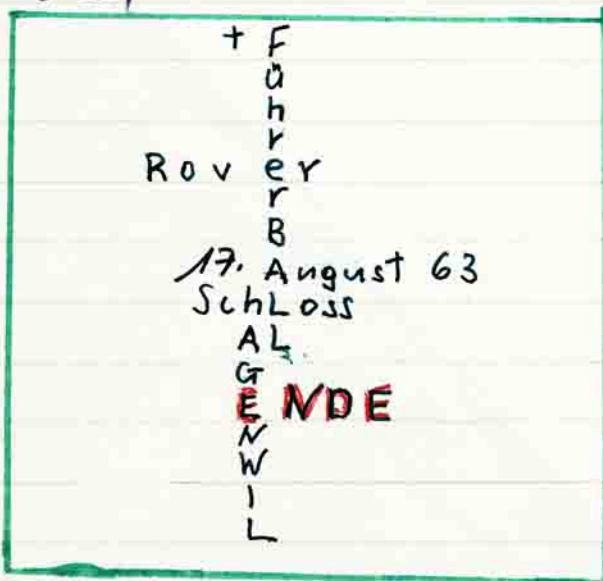 + F
ü
h
r
Rover
r
B
17. August 63
SchLoss
A L
G
E NDE
N
W
I
L